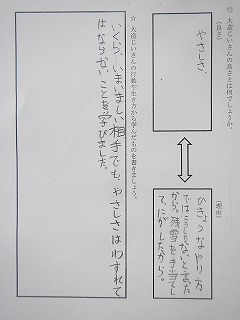 ◎ 大造じいさんの良さとは何でしょうか。
(良さ)
やさしさ。
(理由)
ひきょうなやり方
ではこうしたくないと言った
から。残雪を手当てし
て、にがしたから。
☆ 大造じいさんの行動や生き方から学んだものを書きましょう。
いくら、いまいましい相手でも、やさしさはわすれて
はならないことを学びました。